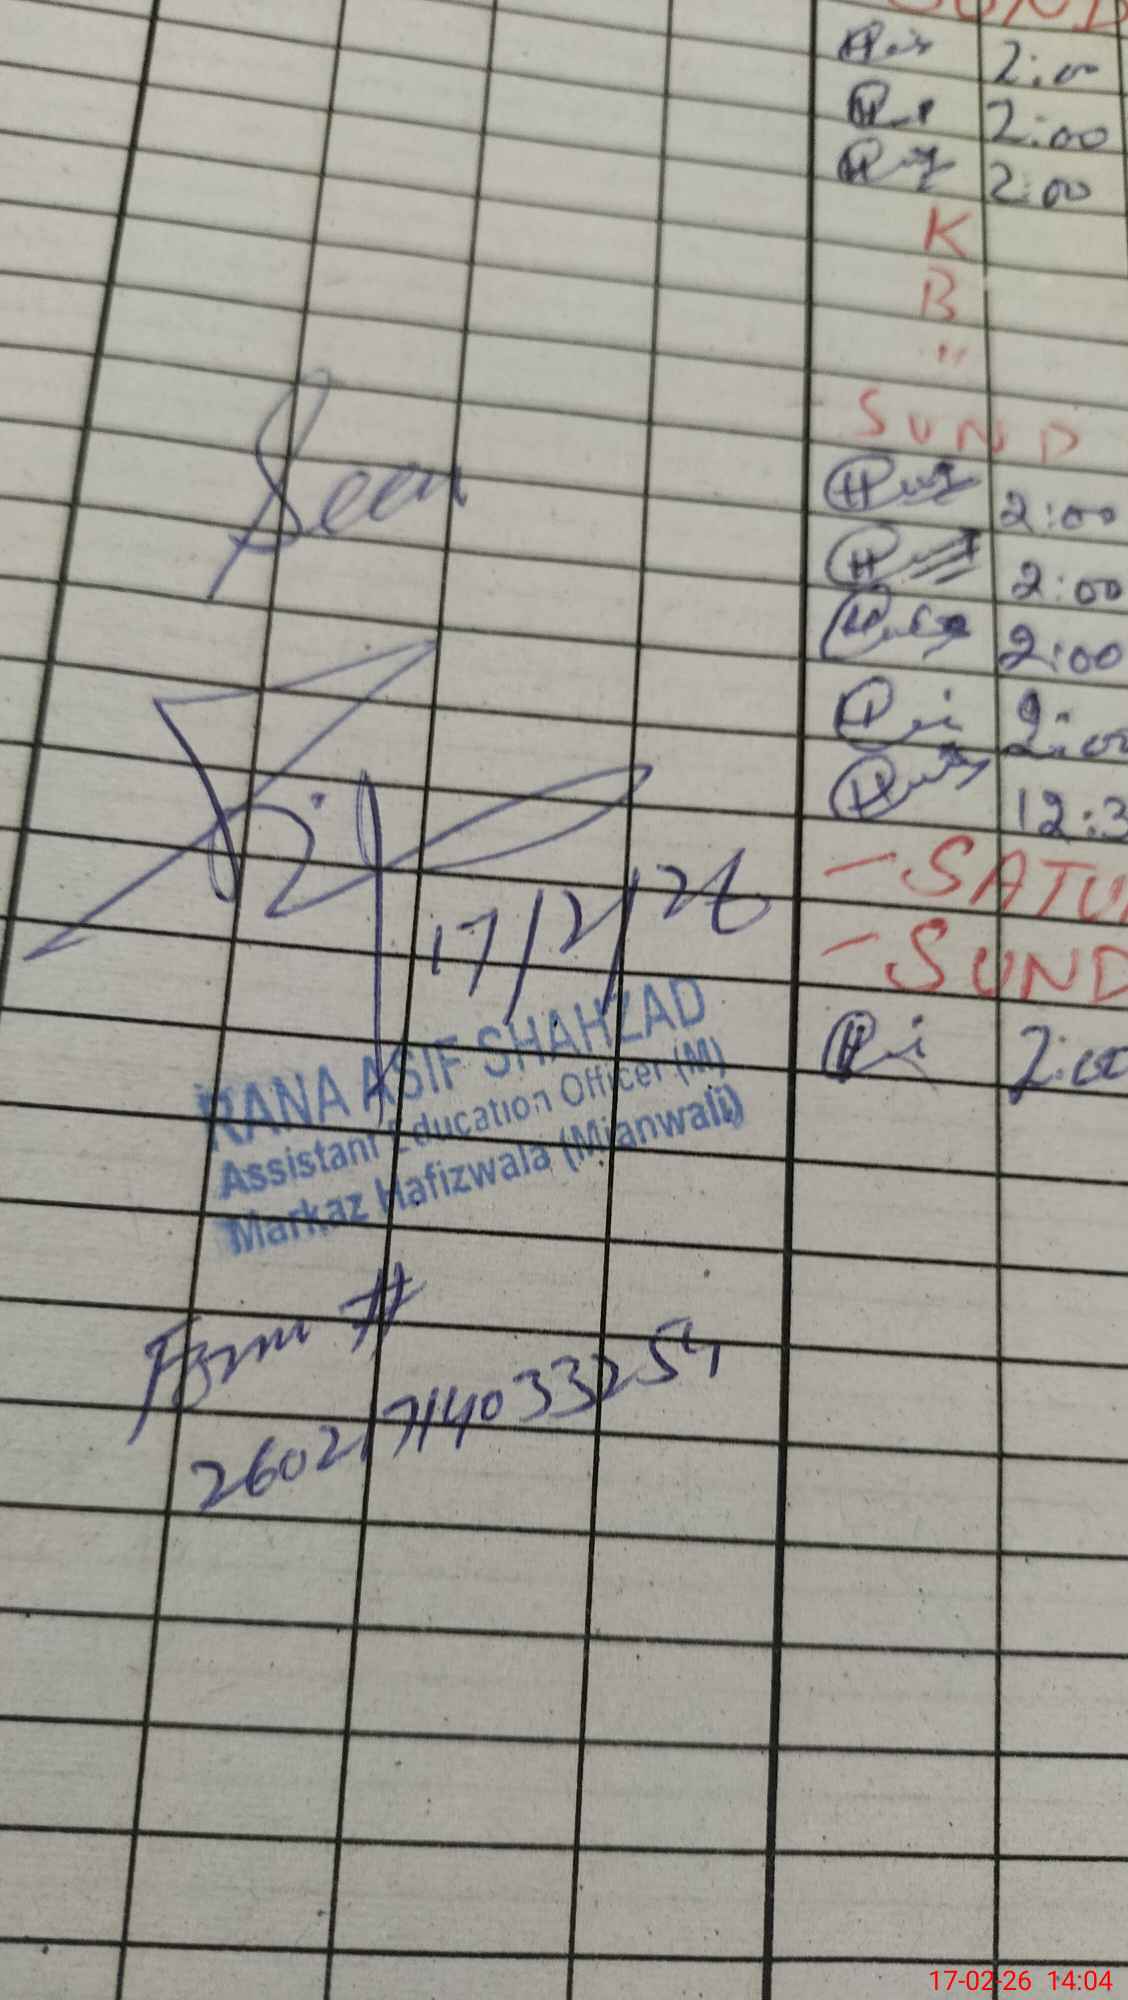 SUND
2:00
2:00
2:00
K
B
"
SUND
2:00
2:00
2:00
2:00
12:3
- SATU
- SUND
2:00
Seen
17/2/26
RANA ASIF SHAHZAD
Assistant Education Officer (M)
Markaz Hafizwala (Mianwali)
Form #
26021714033254
17-02-26 14:04